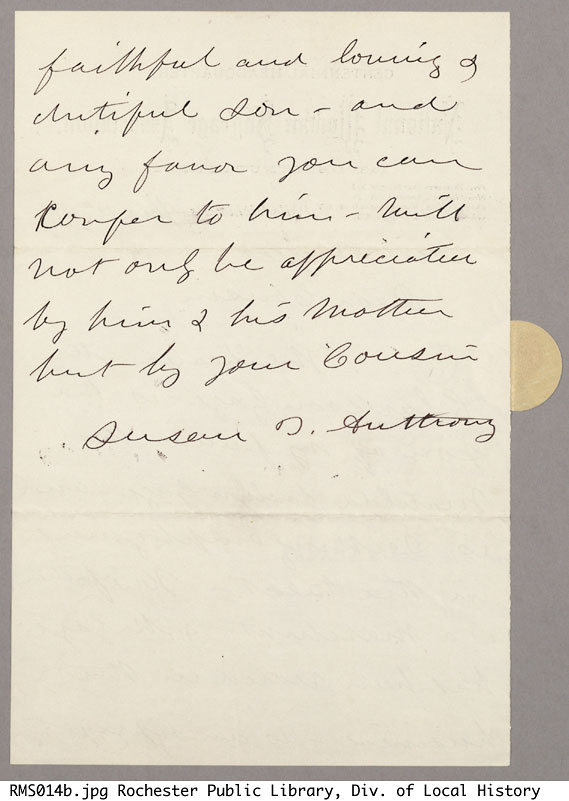 faithful and loving &
dutiful son - and
any favor you can
confer to him - will
not only be appreciated
by him & his Mother
but by your Cousin
Susan B. Anthony
RMS014b.jpg Rochester Public Library, Div. of Local History